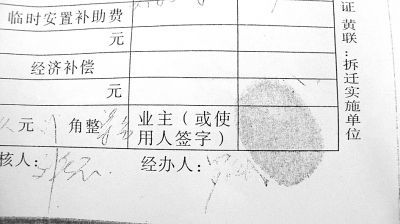 临时安置补助费
元
经济补偿
元
元 角整
业主（或使
用人签字）
核人：
经办人：
证 黄联：拆迁实施单位